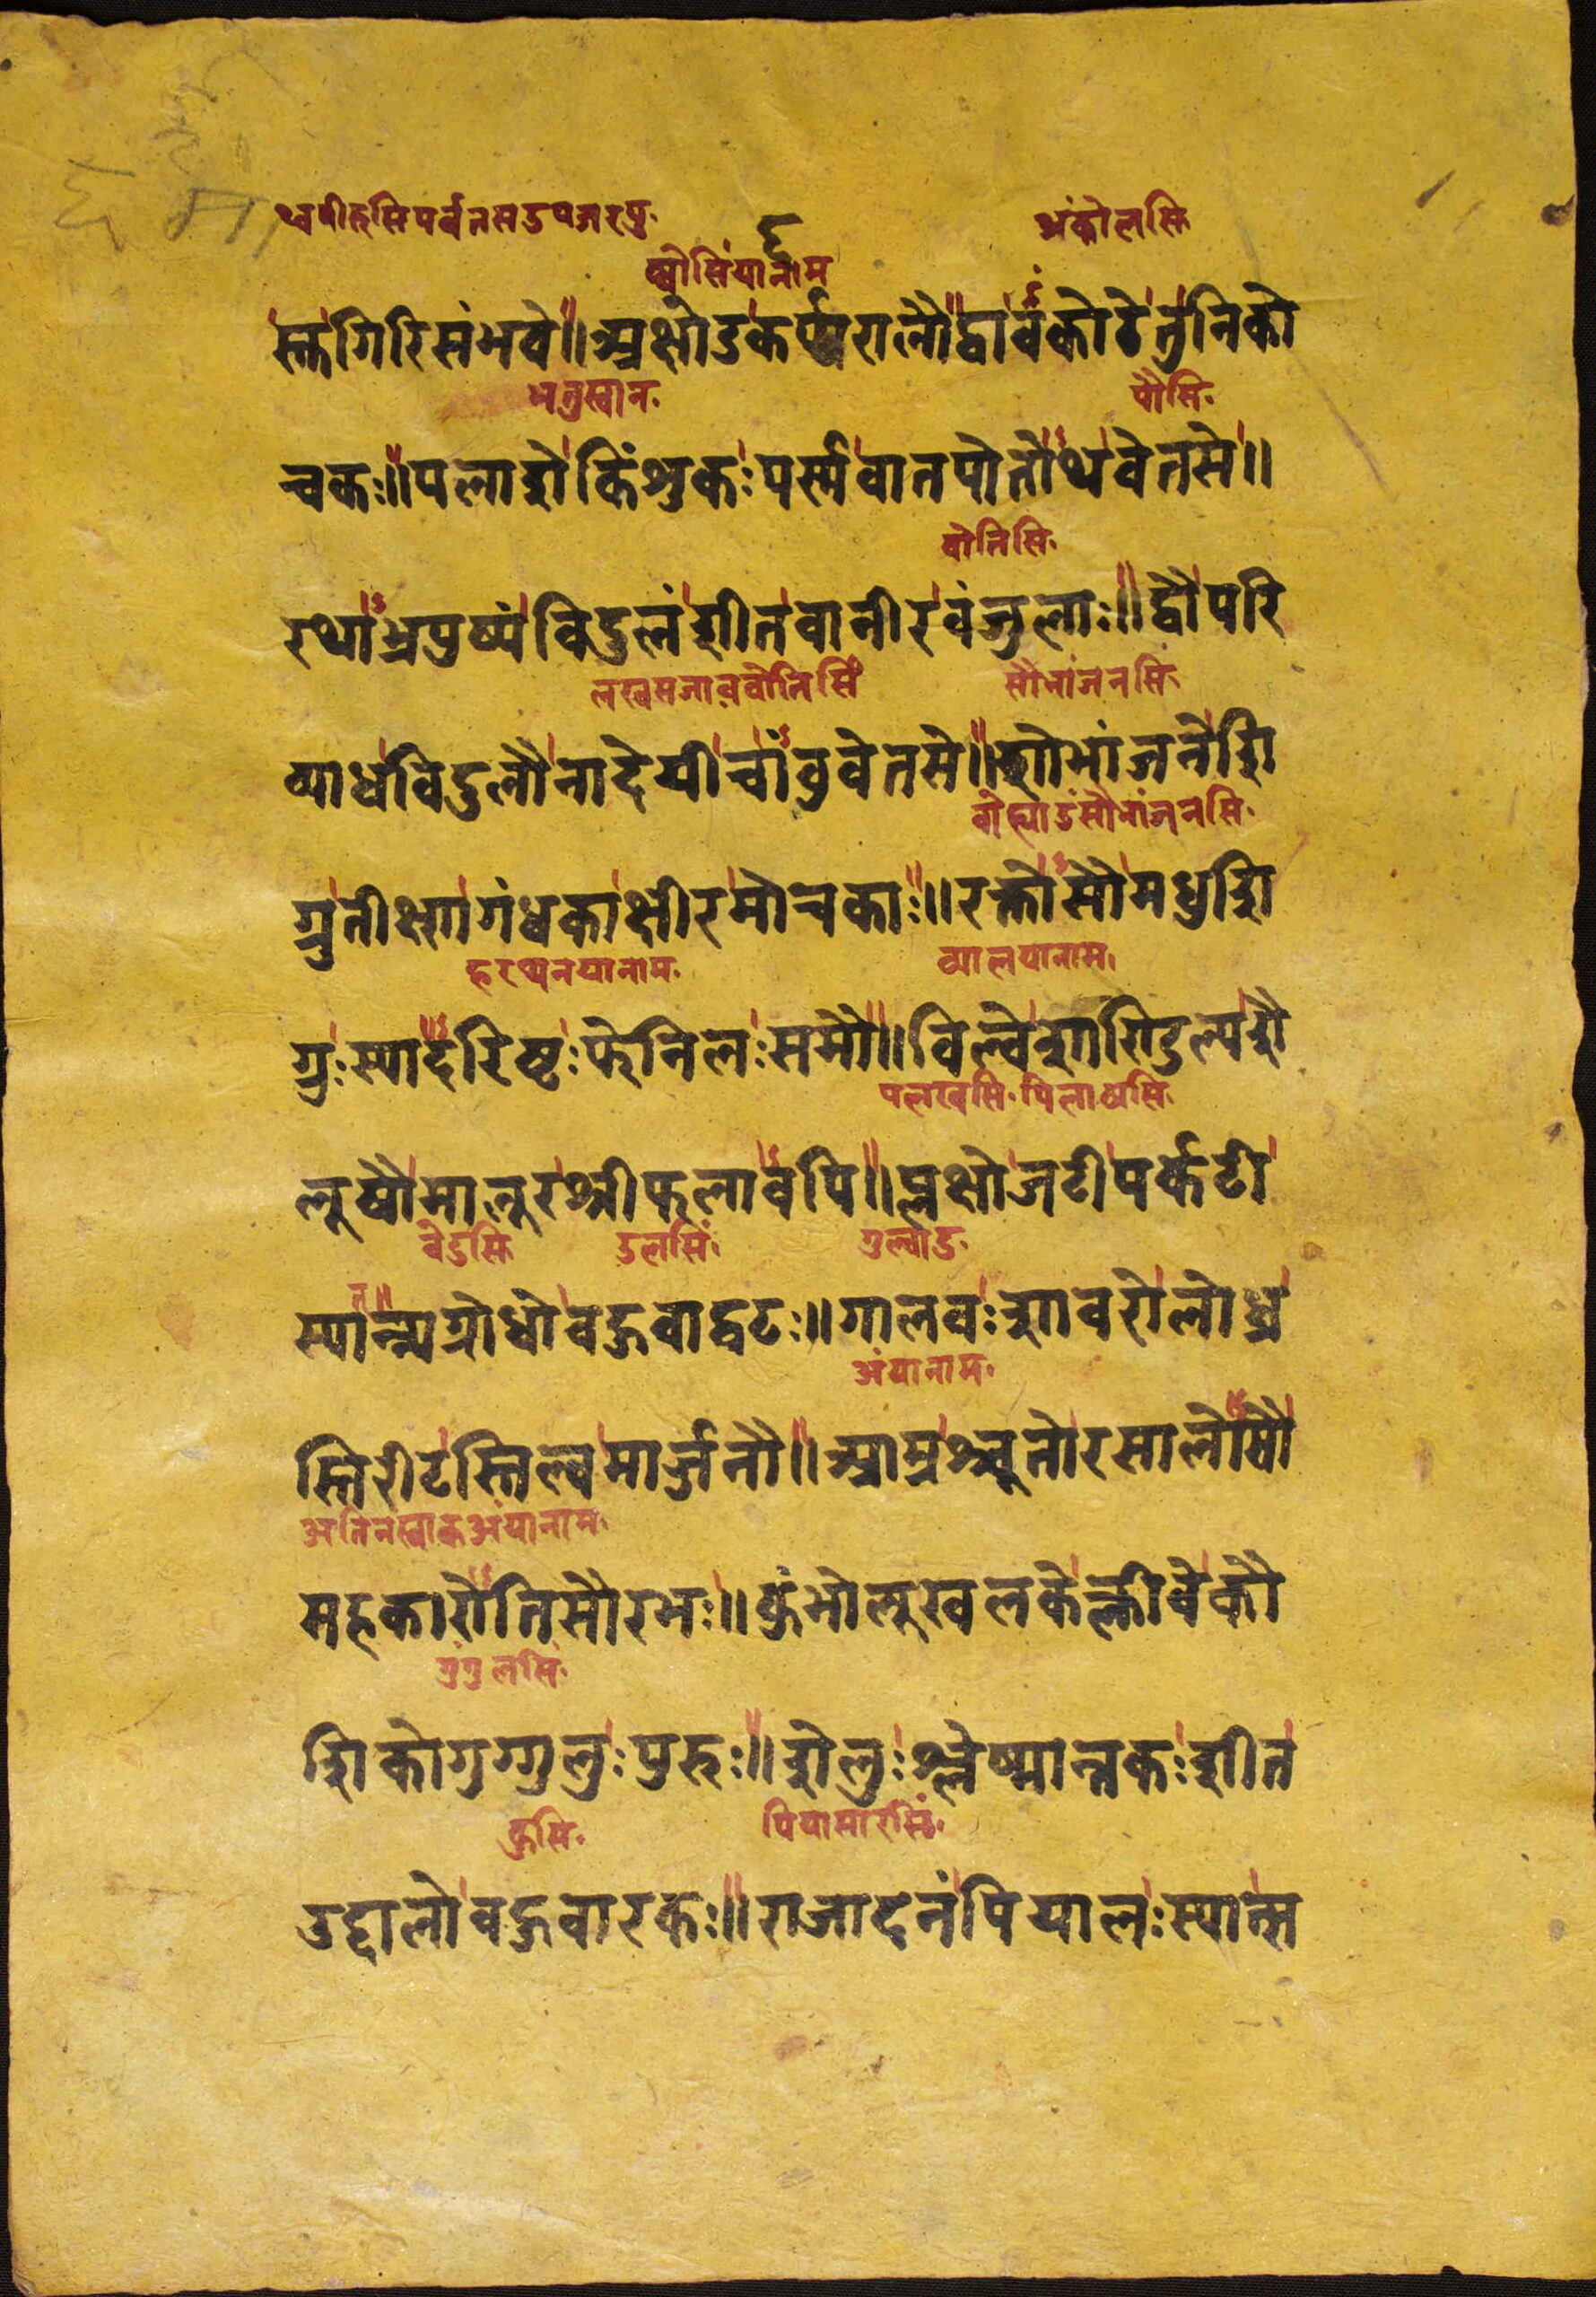 थ्वपीरुसिपर्वतसडपजरपु.
अंकोलसि
ष्वोसिंयानाम
स्तगिरिसंभवे॥अक्षोडकर्परालौद्वावंकोटेतुनिको
धनुस्वान.
पौसि.
चकः॥पलाशेकिंशुकःपर्स्मवातपोतोथवेतसे॥
वोतिसि.
रथाभ्रपुष्पंविदुलंशीतवानीरवंजुलाः॥द्वौपरि
लखसजावववोतिसिं
सौभांजनसिं
व्याधविदुलौनादेयीचांवुवेतसे॥शोभांजनेशि
वोह्याडंसौभांजनसि.
ग्रुतीक्ष्णगंधकाक्षीरमोचकाः॥रक्तोसौमधुशि
हरथ्यनयानाम.
व्यालयानाम.
ग्रुःस्यादरिष्टःफेनिलःसमौ॥विल्वेशाण्डिल्यशै
पलखसि.पिलाष्वसि.
लूषौमालूरश्रीफलावपि॥प्लक्षोजटीपर्कटी
वेडसि
डलसिं.
गुल्वाड.
स्यान्न्यग्रोधोवहुवाद्वटः॥गालवःशावरोलोध्र
अंयानाम.
स्तिरीटस्तिल्वमार्जनौ॥आम्रश्चूतोरसालोषौ
अतिनस्वाकअंयानाम.
सहकारोतिसौरभः॥कुंभोलूखलकेक्लीवेकौ
गुंगुलसि.
शिकोगुग्गुलुःपुरुः॥शेलुःश्लेष्मान्तकःशीत
कुसि.
पियासारसिं.
उद्दालोवहुवारकः॥राजादनंपियालःस्यात्स